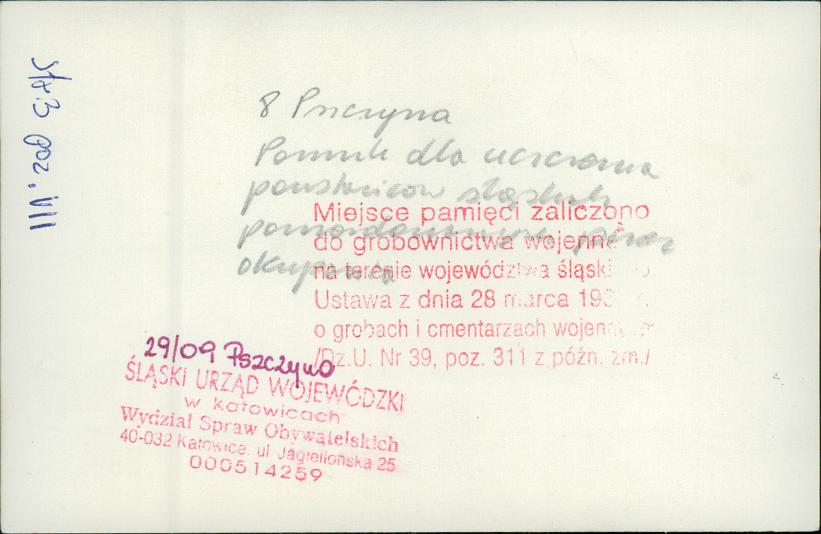 str. 3 poz. VII
8 Pszczyna
Pomnik dla uczczenia
powstańców śląskich
pomordowanych przez
okupanta
Miejsce pamięci zaliczono
do grobownictwa wojenne
na terenie województwa śląski
Ustawa z dnia 28 marca 193
o grobach i cmentarzach wojennych
/Dz.U. Nr 39, poz. 311 z późn. zm./
29/09 Pszczyna
ŚLĄSKI URZĄD WOJEWÓDZKI
w Katowicach
Wydział Spraw Obywatelskich
40-032 Katowice, ul Jagiellońska 25
000514259